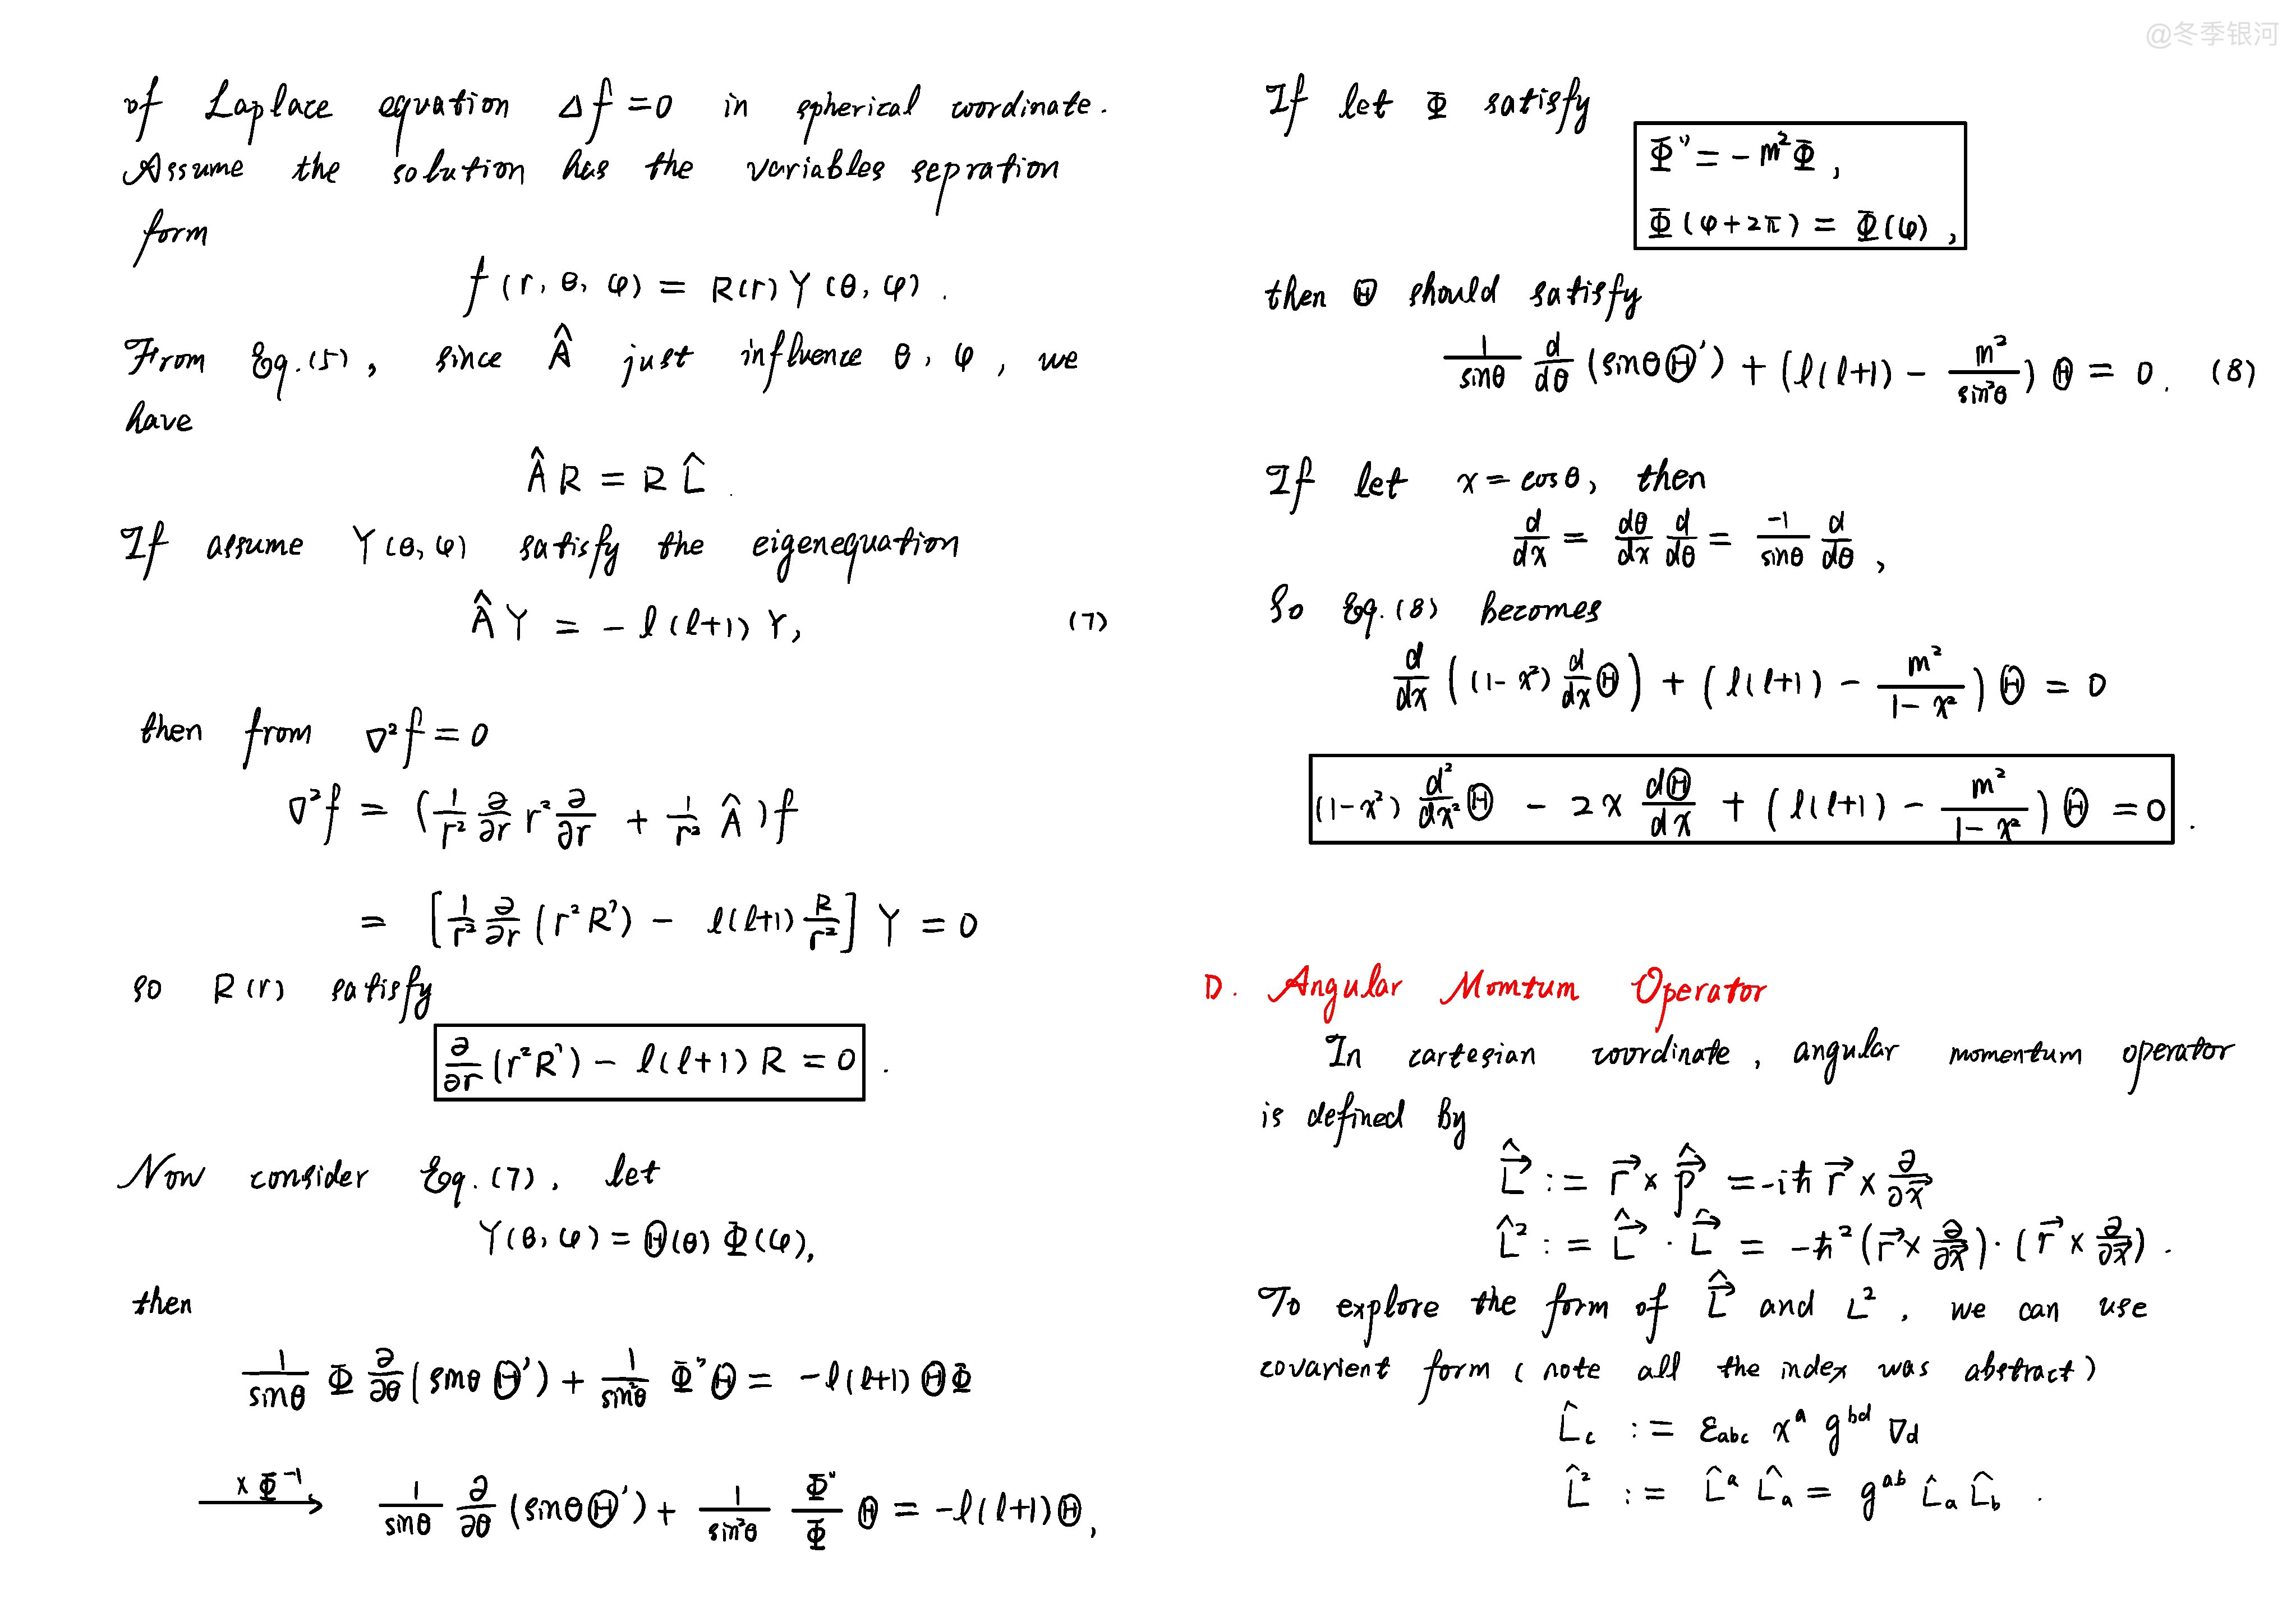 @冬季银河
of Laplace equation Δf = 0 in spherical coordinate.
Assume the solution has the variables sepration
form
f(r, θ, φ) = R(r) Y(θ, φ).
From Eq.(5), since Â just influence θ, φ, we
have
Â R = R L̂.
If assume Y(θ, φ) satisfy the eigenequation
Â Y = - l(l+1) Y, (7)
then from ∇²f = 0
∇²f = (1/r² ∂/∂r r² ∂/∂r + 1/r² Â) f
= [1/r² ∂/∂r (r² R') - l(l+1) R/r²] Y = 0
so R(r) satisfy
∂/∂r (r² R') - l(l+1) R = 0.
Now consider Eq.(7), let
Y(θ, φ) = Θ(θ) Φ(φ),
then
1/sinθ Φ ∂/∂θ (sinθ Θ') + 1/sin²θ Φ'' Θ = -l(l+1) Θ Φ
×Φ⁻¹ → 1/sinθ ∂/∂θ (sinθ Θ') + 1/sin²θ Φ''/Φ Θ = -l(l+1) Θ,
If let Φ satisfy
Φ'' = -m² Φ,
Φ(φ+2π) = Φ(φ),
then Θ should satisfy
1/sinθ d/dθ (sinθ Θ') + (l(l+1) - m²/sin²θ) Θ = 0. (8)
If let x = cosθ, then
d/dx = dθ/dx d/dθ = -1/sinθ d/dθ,
So Eq.(8) becomes
d/dx ((1-x²) d/dx Θ) + (l(l+1) - m²/(1-x²)) Θ = 0
(1-x²) d²/dx² Θ - 2x dΘ/dx + (l(l+1) - m²/(1-x²)) Θ = 0.
D. Angular Momtum Operator
In cartesian coordinate, angular momentum operator
is defined by
L̂⃗ := r⃗ × p̂⃗ = -iħ r⃗ × ∂/∂x⃗
L̂² := L̂⃗ · L̂⃗ = -ħ² (r⃗ × ∂/∂x⃗) · (r⃗ × ∂/∂x⃗).
To explore the form of L̂⃗ and L², we can use
covarient form (note all the index was abstract)
L̂_c := ε_abc x^a g^bd ∇_d
L̂² := L̂^a L̂_a = g^ab L̂_a L̂_b.